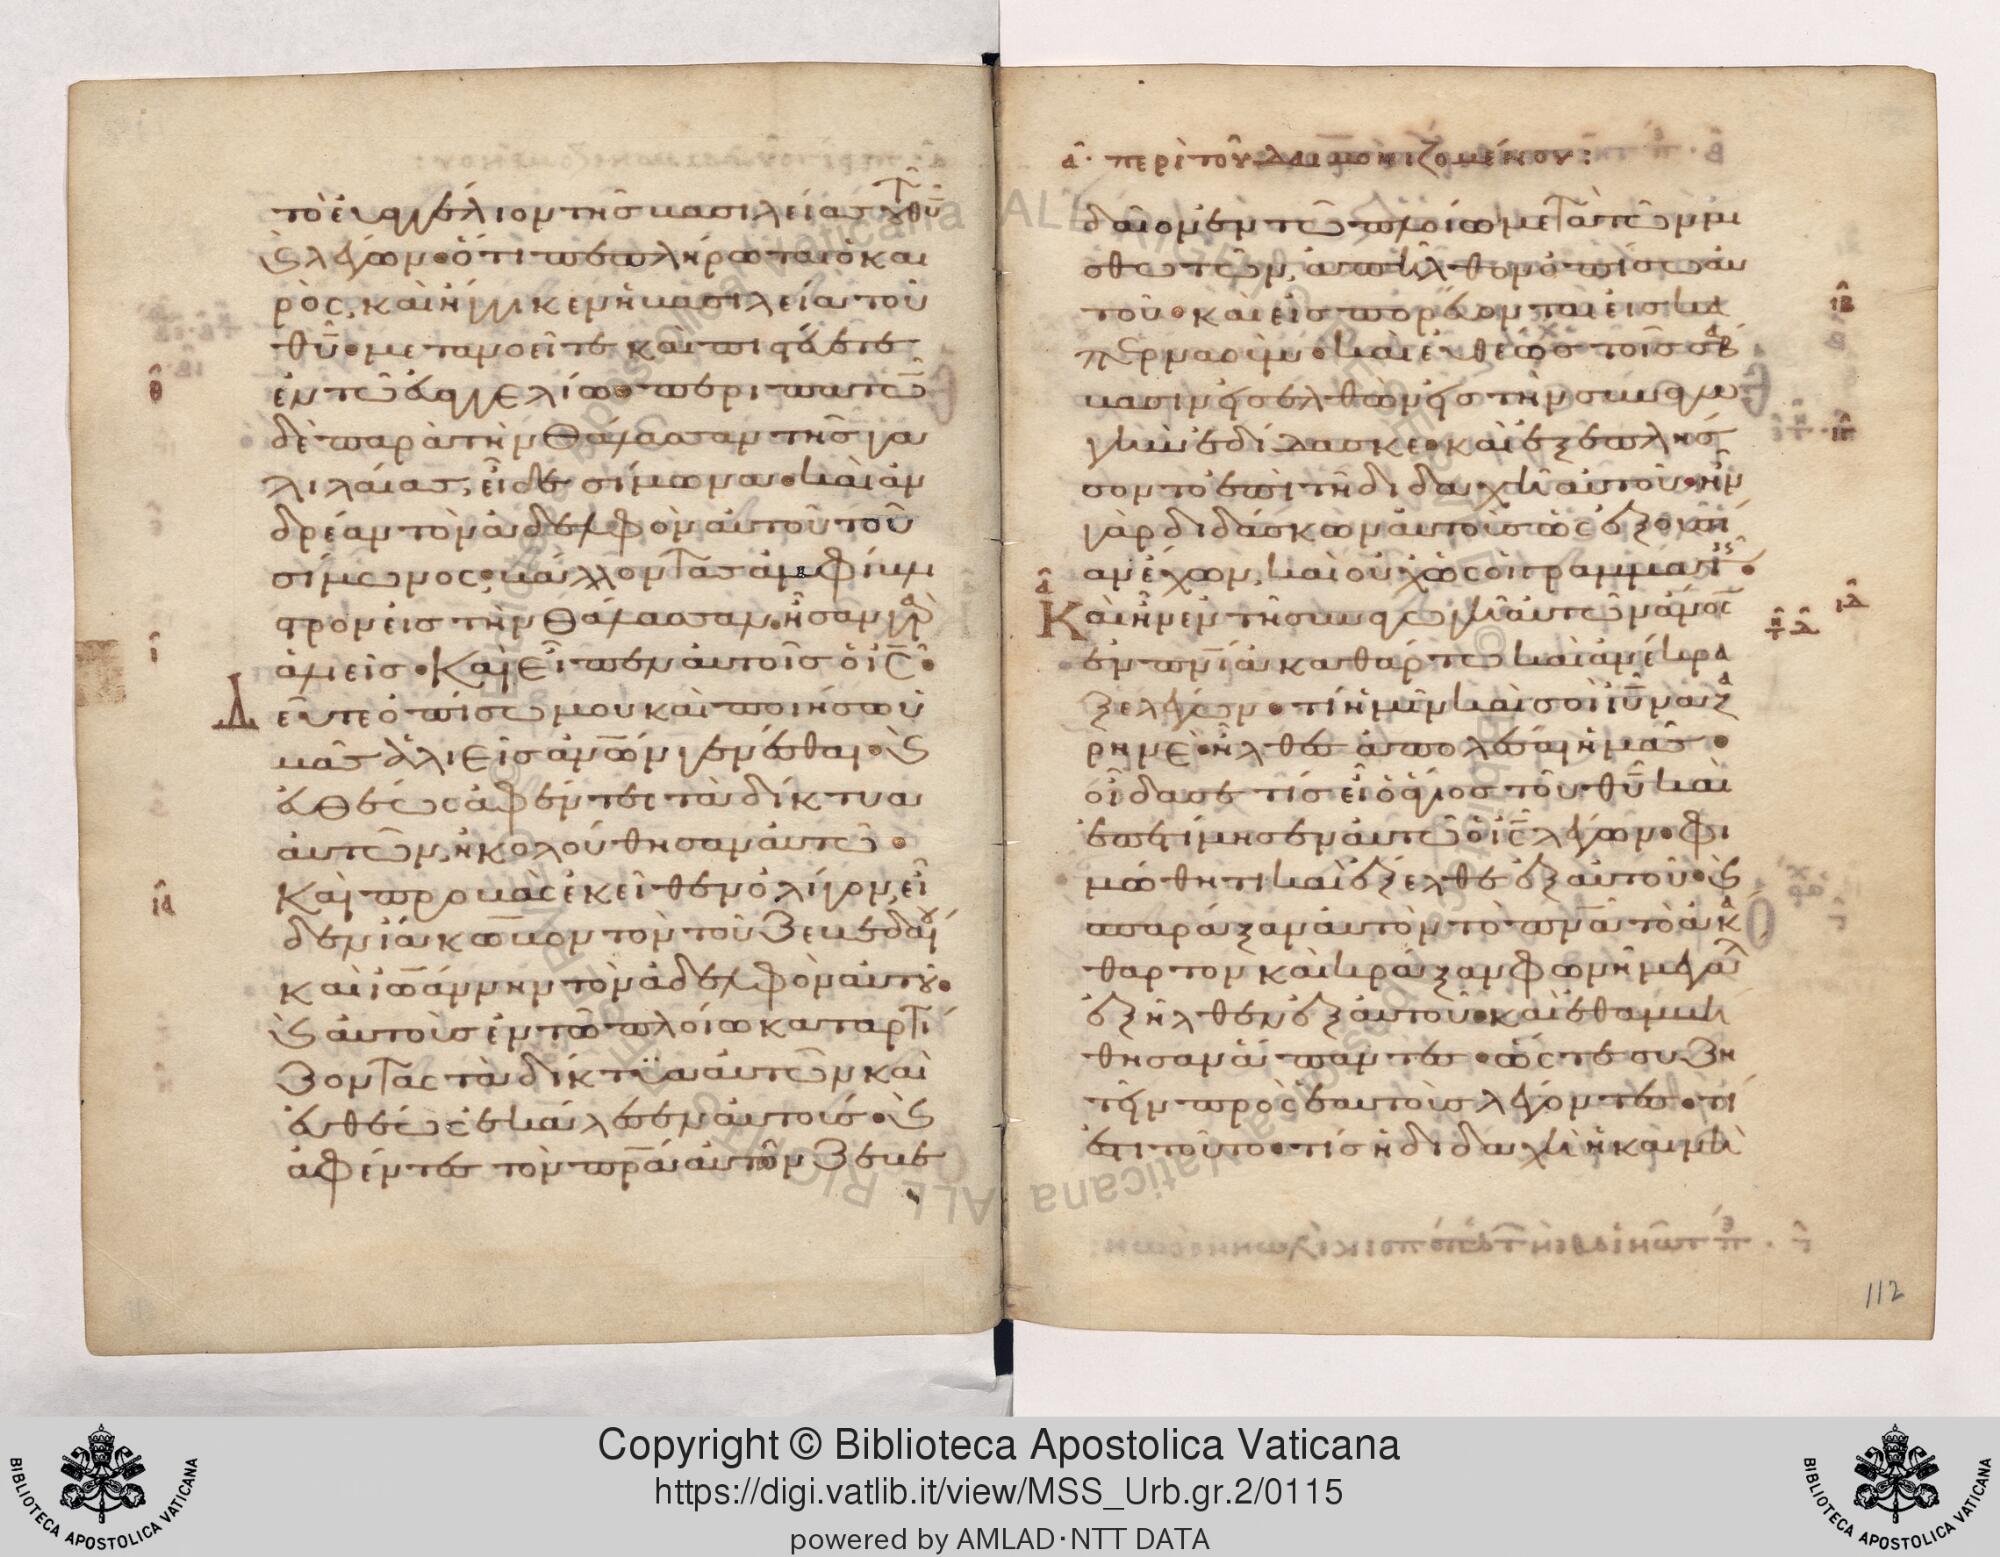 τὸ ἐυαγγέλιον τῆς βασιλείας τοῦ θῡ
λέγων· ὅτι πεπλήρωται ὁ και
ρὸς, καὶ ἤγγικεν ἡ βασιλεία τοῦ
θῡ· μετανοεῖτε καὶ πιστεύετε
ἐν τῶ ἐυαγγελίω· περιπατῶ
δὲ παρὰ τὴν θάλασσαν τῆς γα
λιλαίας, εἶδε σίμωνα· καὶ ἀν
δρέαν τὸν ἀδελφὸν αὐτοῦ τοῦ
σίμωνος· βάλλοντας ἀμφίβλη
στρον εἰς τὴν θάλασσαν· ἦσαν γὰρ
ἁλιεῖς· Καὶ εἶπεν αὐτοῖς ὁ ις̄·
Δεῦτε ὀπίσω μου καὶ ποιήσω ὑ
μᾶς ἁλιεῖς ἀνων γενέσθαι· καὶ
ἐυθέως ἀφέντες τὰ δίκτυα
αὐτῶν, ἠκολούθησαν αὐτῶ·
Καὶ προβὰς ἐκεῖθεν ὀλίγον, εἶ
δεν ἰάκωβον τὸν τοῦ Ζεβεδαίου
καὶ ἰωάννην τὸν ἀδελφὸν αὐτοῦ·
καὶ αὐτοὺς ἐν τῶ πλοίω καταρτί
ζοντας τὰ δίκτϋα αὐτῶν καὶ
ἐυθέως ἐκάλεσεν αὐτούς· καὶ
ἀφέντες τὸν πρ̄α αὐτῶν Ζεβε
θ
ι
ια
α· περὶ τοῦ δαιμονιζομένου:
δαῖον ἐν τῶ πλοίω μετὰ τῶν μι
σθωτῶν, ἀπῆλθον ὀπίσω αὐ
τοῦ· καὶ εἰσπορέυονται εἰς κα
περναούμ· καὶ ἐυθέως τοῖς σάβ
βασιν εἰσελθὼν εἰς τὴν συναγω
γὴν ἐδίδασκε· καὶ ἐξεπλήσ
σοντο ἐπὶ τῆ διδαχῆ αὐτοῦ· ἦν
γὰρ διδάσκων αὐτοὺς ὡς ἐξουσί
αν ἔχων, καὶ οὐχ ὡς οἱ γραμματεῖς·
Καὶ ἦν ἐν τῆ συναγωγῆ αὐτῶν ἄνος
ἐν πνι ἀκαθάρτω καὶ ἀνέκρα
ξε λέγων· τί ἡμῖν καὶ σοὶ ιῡ ναζα
ρηνέ· ἦλθες ἀπολέσαι ἡμᾶς·
οἶδα σε τίς εἶ ὁ ἅγιος τοῦ θῡ καὶ
ἐπετίμησεν αὐτῶ ὁ ις̄ λέγων· φι
μώθητι καὶ ἔξελθε ἐξ αὐτοῦ· καὶ
σπαράξαν αὐτὸν τὸ πνα τὸ ἀκά
θαρτον καὶ κράξαν φωνῆ μεγάλη
ἐξῆλθεν ἐξ αὐτοῦ· καὶ ἐθαμβή
θησαν ἅπαντες· ὥς τε συζη
τεῖν πρὸς ἑαυτοὺς λέγοντες· τί
ἐστι τοῦτο· τίς ἡ διδαχὴ ἡ καινὴ
ιβ
ιγ
α
ιδ
112
Copyright © Biblioteca Apostolica Vaticana
https://digi.vatlib.it/view/MSS_Urb.gr.2/0115
powered by AMLAD·NTT DATA
BIBLIOTECA APOSTOLICA VATICANA
BIBLIOTECA APOSTOLICA VATICANA